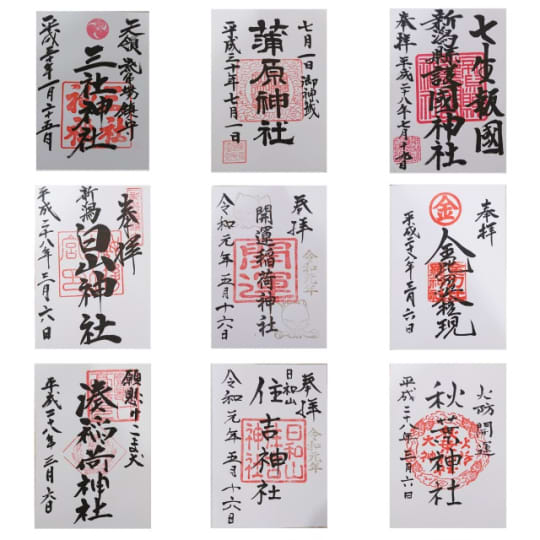 三社神社
平成三十年一月二十五日
七月一日御神域
蒲原神社
平成三十年七月一日
七生報國
新潟縣護國神社
奉拝 平成二十八年七月十七日
奉拝
新潟
白山神社
平成二十八年三月六日
奉拝
開運稲荷神社
開運
令和元年
令和元年五月十六日
奉拝
金
平成二十八年三月六日
願懸けこま犬
湊稲荷神社
平成二十八年三月六日
奉拝
日和山
住吉神社
日和山
住吉
神社
令和元年
令和元年五月十六日
火防開運
秋葉神社
平成二十八年三月六日